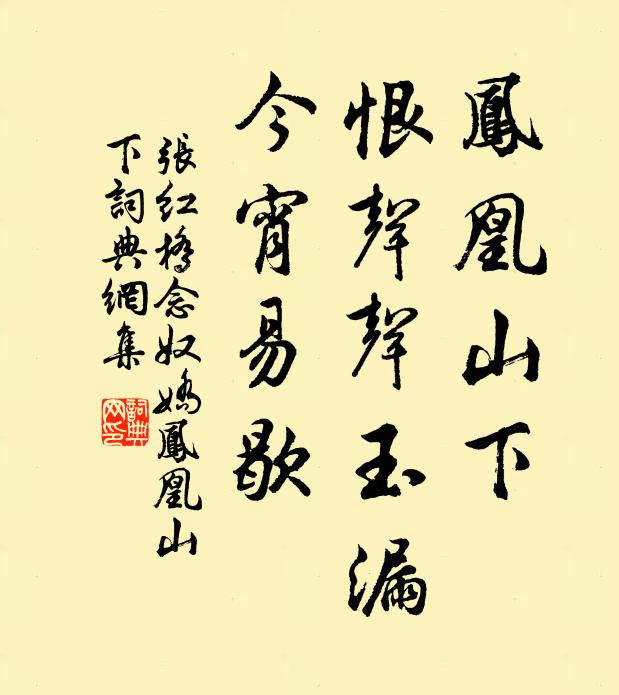 鳳凰山下
恨聲聲玉漏
今宵易歇
張紅橋念奴嬌鳳凰山
下詞典網集
詞典
网印